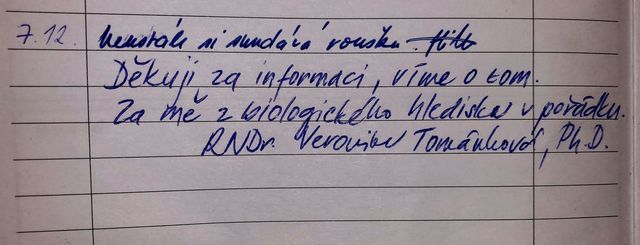 7.12. neustále si sundává roušku.
Děkuji za informaci, víme o tom.
Za mě z biologického hlediska v pořádku.
RNDr. Veronika Tománková, Ph.D.